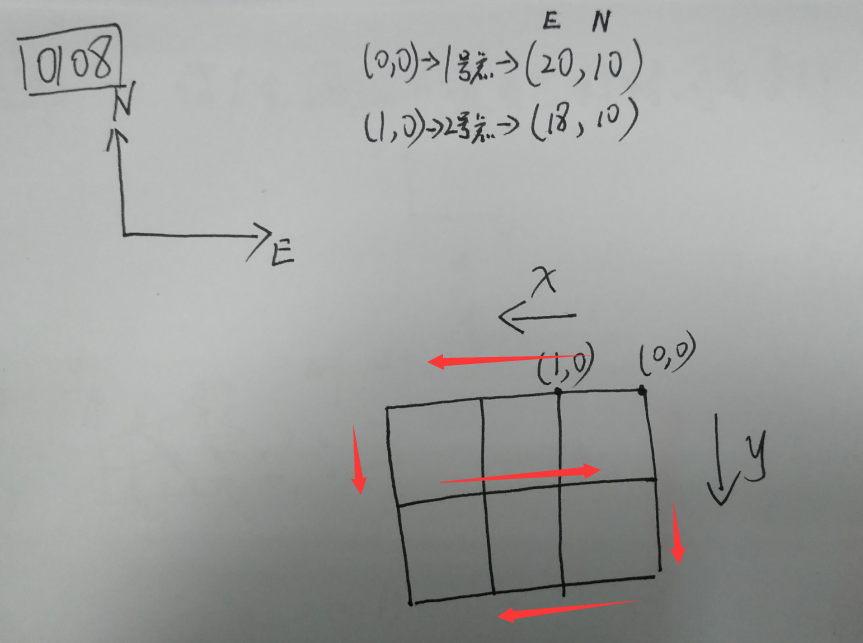 0108
E N
(0,0)→1号点→(20,10)
(1,0)→2号点→(18,10)
N
E
x
(1,0) (0,0)
y